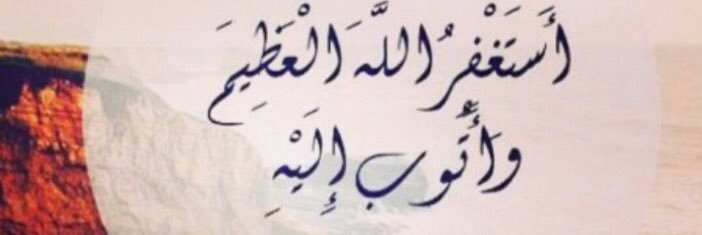 أَسْتَغْفِرُ اللَّهَ الْعَظِيمَ
وَأَتُوبُ إِلَيْهِ